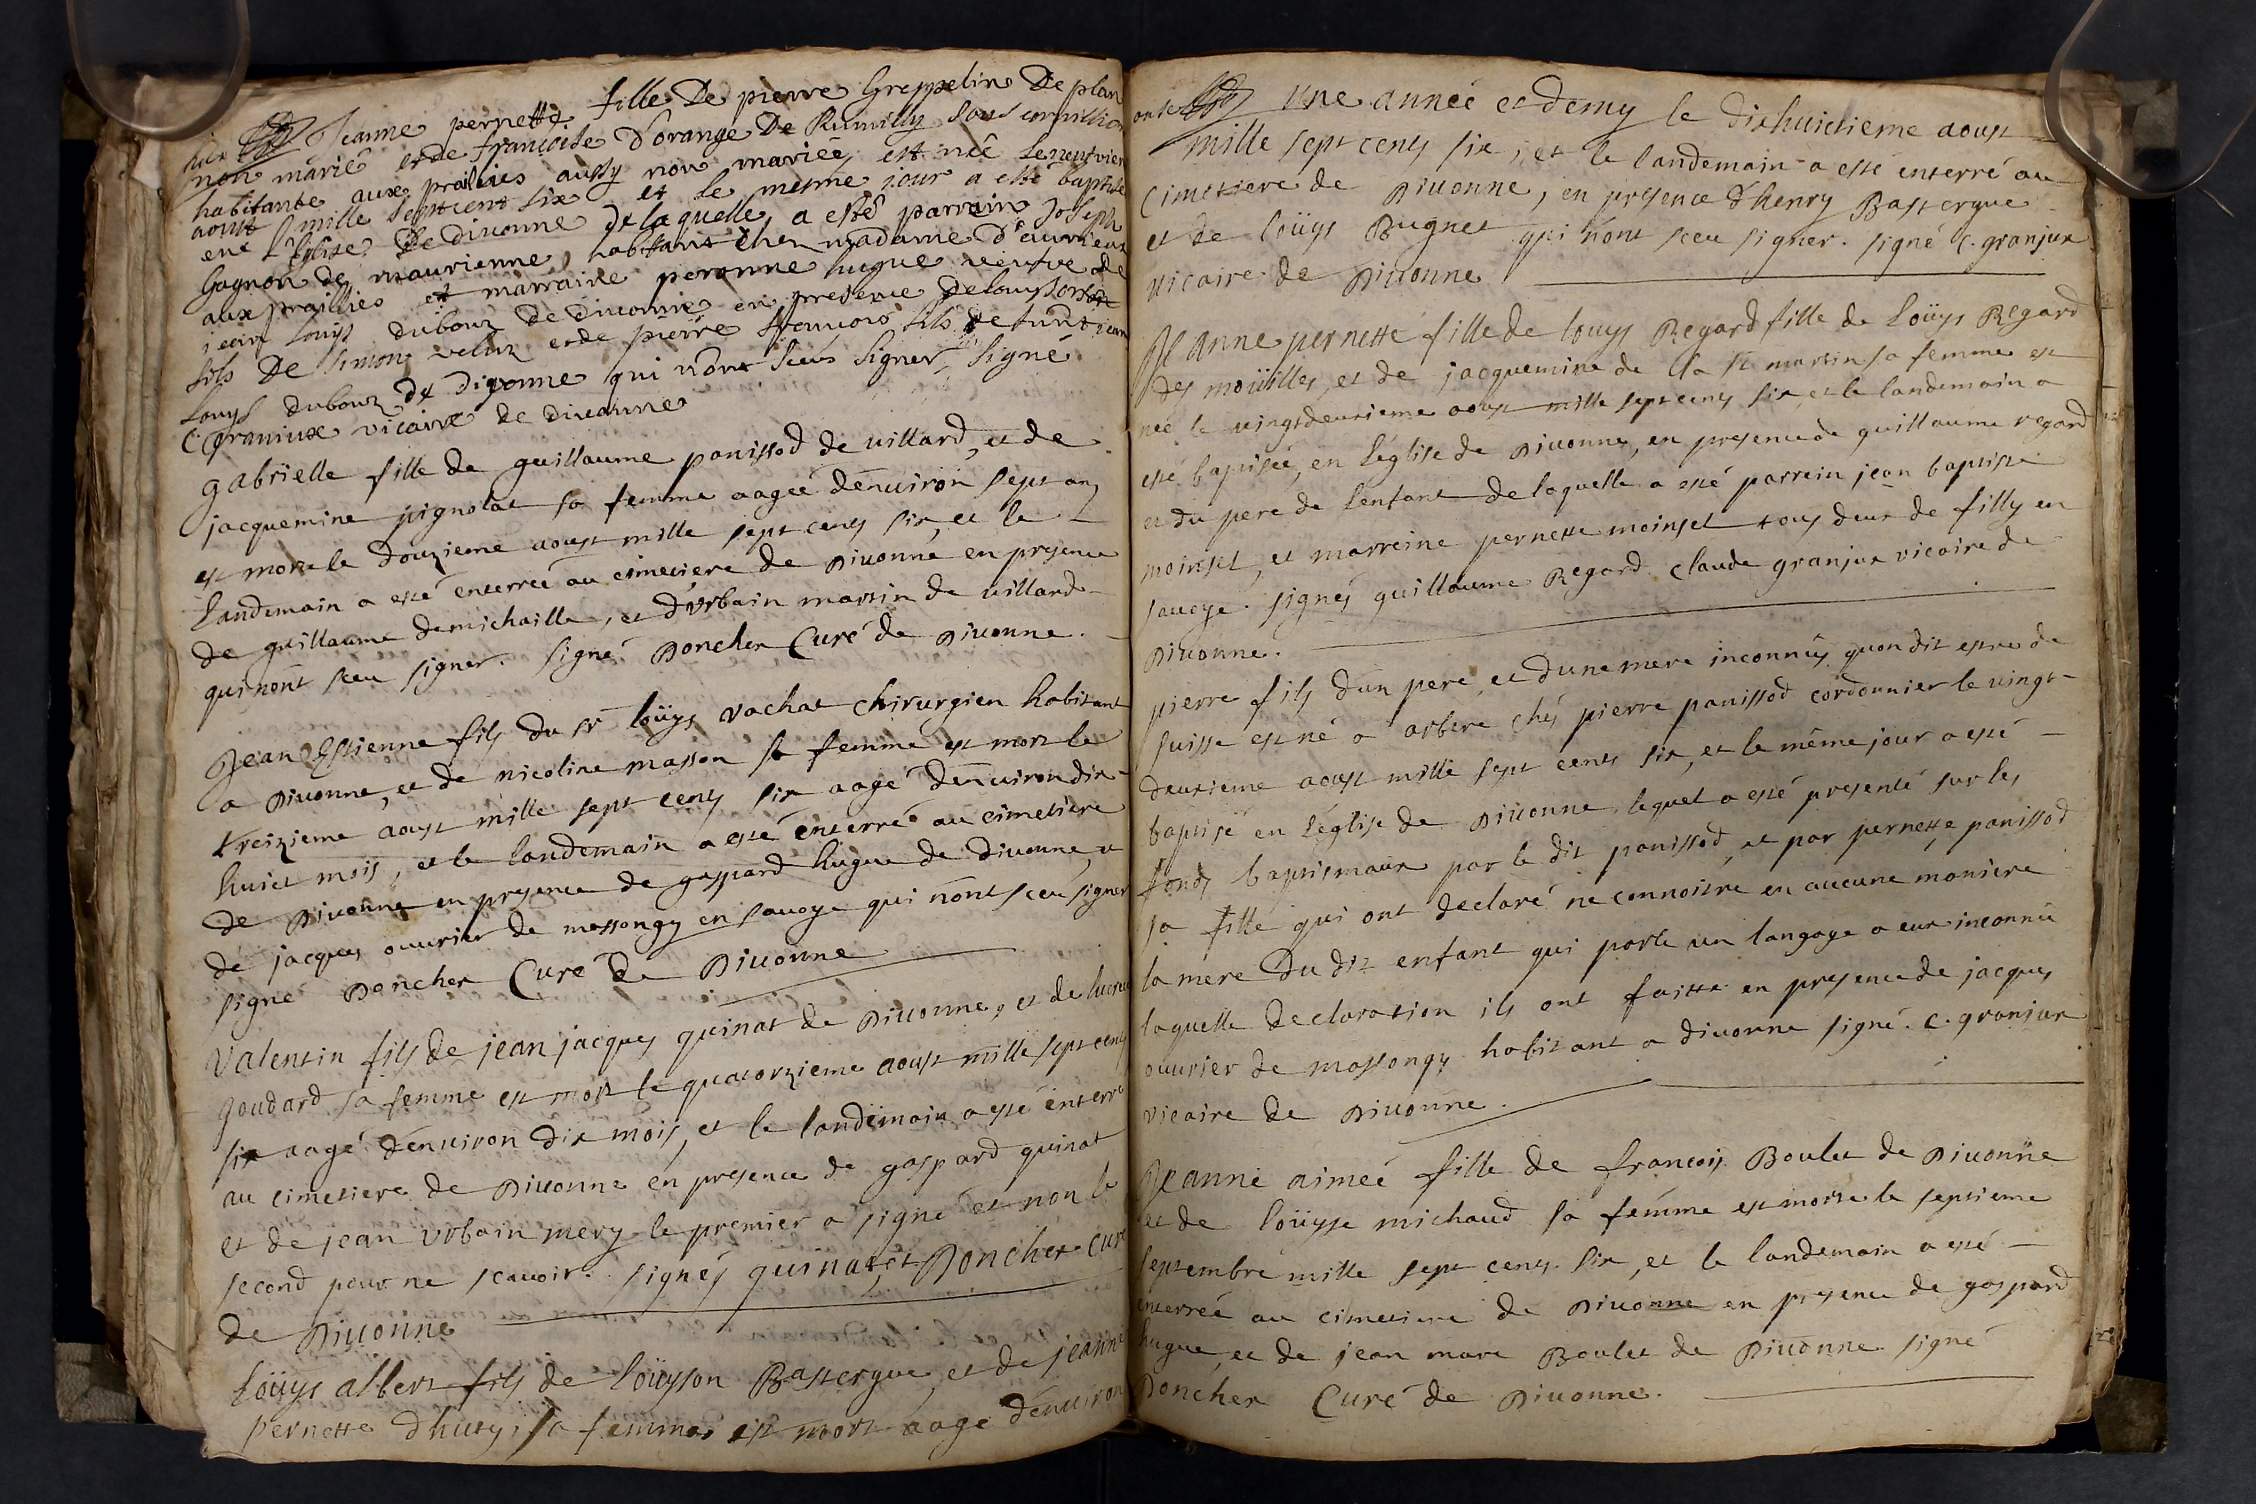 dix Jeanne pernette fille De pierre Greppelin De plan
non marié et de françoise D'orange De Rumilly sous cornillion
habitante aux prailies aussy non mariée, est née le neufvien
aoust mille Septcent six et le mesme jour a esté baptisée
en l'Eglise De divonne De laquelle a esté parrain Joseph
Gagnon de maurienne, habitant chez madame D'auvrieux
aux prailies et marraine peronne hugue veufve de
jean louys dubouz De divonne en presence De louys
fils De simon veluz et de pierre francois fils De funt jean
louys dubouz De divonne qui n'ont sceus signer, signé
C granjux vicaire de divonne
gabrielle fille de guillaume panissod de villard, et de
jacquemine pignolat sa femme aageé d'enuiron sept ans
est morte le douzieme aoust mille sept cents six, et le
landemain a esté enterreé au cimetiere de Diuonne en presence
de guillaume demichaille, et d'Vrbain martin de uillard
qui n'ont sceu signer. Signé Poncher Curé de Diuonne.
Jean Estienne fils du sr loüys vachat chirurgien habitant
a Diuonne, et de nicoline masson sa femme est mort le
treizieme aoust mille sept cents six aagé d'enuiron dix
huict mois, et le landemain a esté enterré au cimetiere
de Diuonne en presence de gaspard hugue de diuonne, et
de jacques ouurier de massongy en sauoye qui n'ont sceu signer
signé Poncher Curé de Diuonne
Valentin fils de jean jacques quinat de Diuonne, et de
goudard sa femme est mort le quatorzieme aoust mille sept cents
six aagé d'enuiron dix mois, et le landemain a esté enterré
au cimetiere de Diuonne en presence de gaspard quinat
et de jean vrbain mery le premier a signé et non le
second pour ne scauoir. signés quinat, et Poncher Curé
de Diuonne
Loüys albert fils de loüyson Bastergue, et de jeanne
pernette dhuty, sa femme est mort aagé d'enuiron
onse Vne anneé et demy le dixhuictieme aoust
mille sept cents six, et le landemain a esté enterré au
cimetiere de Diuonne, en presence d'henry Bastergue
et de loüys Bugnet qui n'ont sceu signer. signé C. granjux
uicaire de Diuonne
Jeanne pernette fille de louys Regard fille de Loüys Regard
des moüilles, et de jacquemine de la St martin sa femme est
neé le uingtdeuxieme aoust mille sept cents six, et le landemain a
esté baptiseé, en l'église de Diuonne, en presence de guillaume regard
et du pere de l'enfant de laquelle a esté parrein jean baptiste
moinset, et marreine pernette moinset tous deux de filly en
sauoye. signés guillaume Regard. Claude granjux vicaire de
Diuonne.
pierre fils d'un pere, et d'une mere inconnus qu'on dit estre de
suisse est né a arbere chés pierre panissod cordonnier le uingt
deuxieme aoust mille sept cents six, et le même jour a esté
baptisé en l'église de Diuonne lequel a esté presenté sur les
fonds baptismaux par le dit panissod, et par pernette panissod
sa fille qui ont declaré ne connoitre en aucune maniere
la mere du dit enfant qui parle un langage a eux inconnu
laquelle declaration ils ont faitte en presence de jacques
ouurier de massongy habitant a diuonne signé. C. granjux
vicaire de Diuonne.
Jeanne aimeé fille de francois Boulet de Diuonne
et de loüyse michaud sa femme est morte le septieme
septembre mille sept cents six, et le landemain a esté
enterreé au cimetiere de Diuonne en presence de gaspard
hugue, et de jean marc Boulet de Diuonne signé
Poncher Curé de Diuonne.